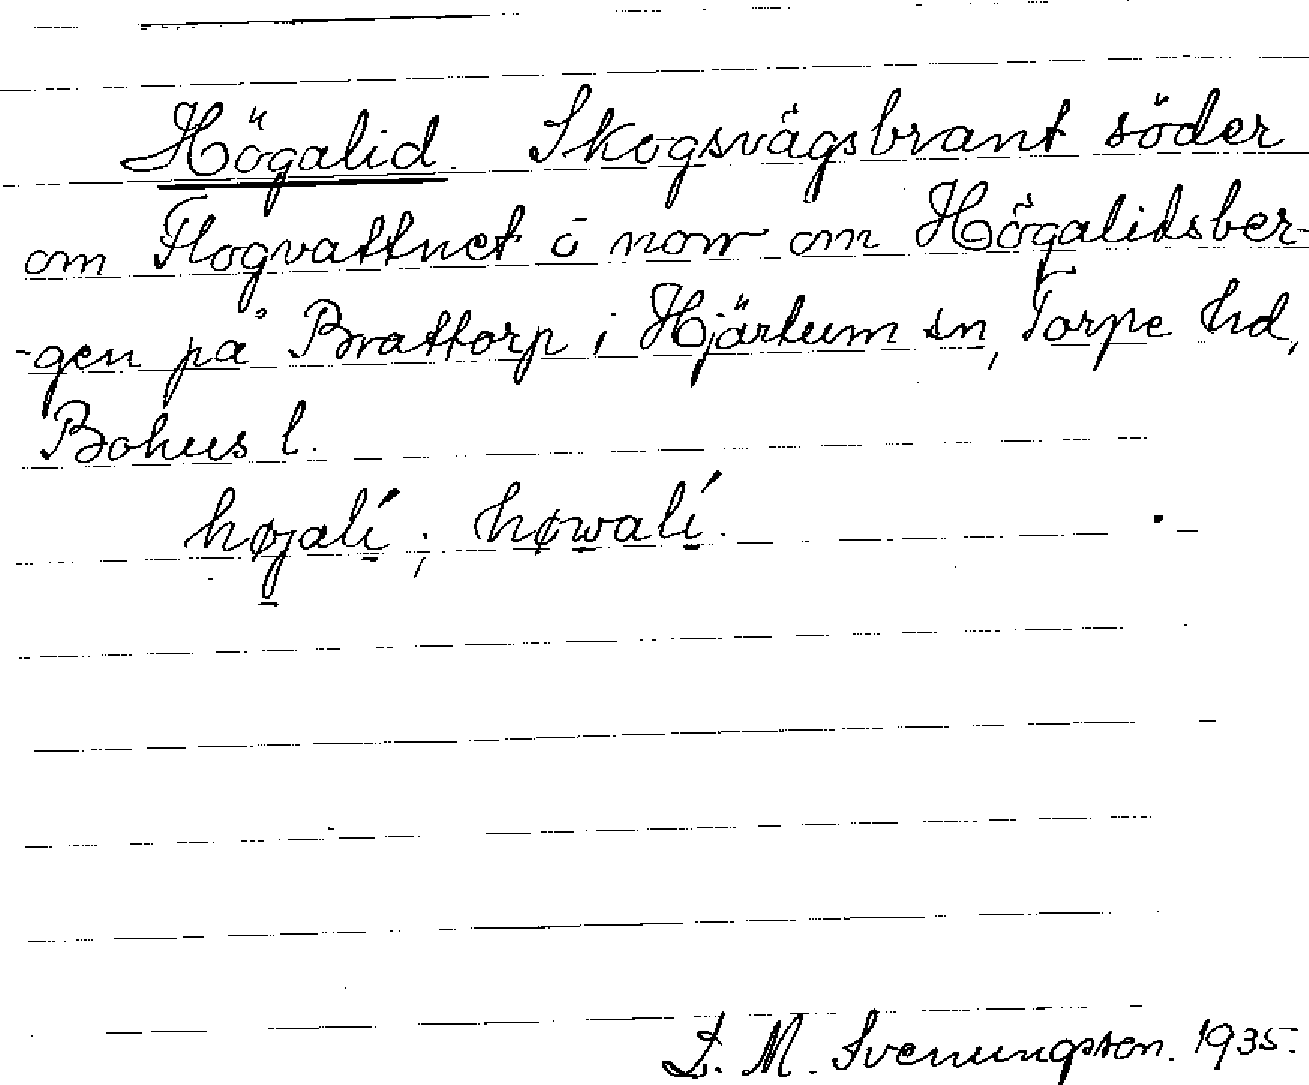 Högalid Skogsvägsbrant söder
om Flogvattnet o norr om Högalidsber-
-gen på Brattorp i Hjärtum sn, Torpe hd,
Bohus l.
højalí; høwalí.
S. M. Svenungsson. 1935.